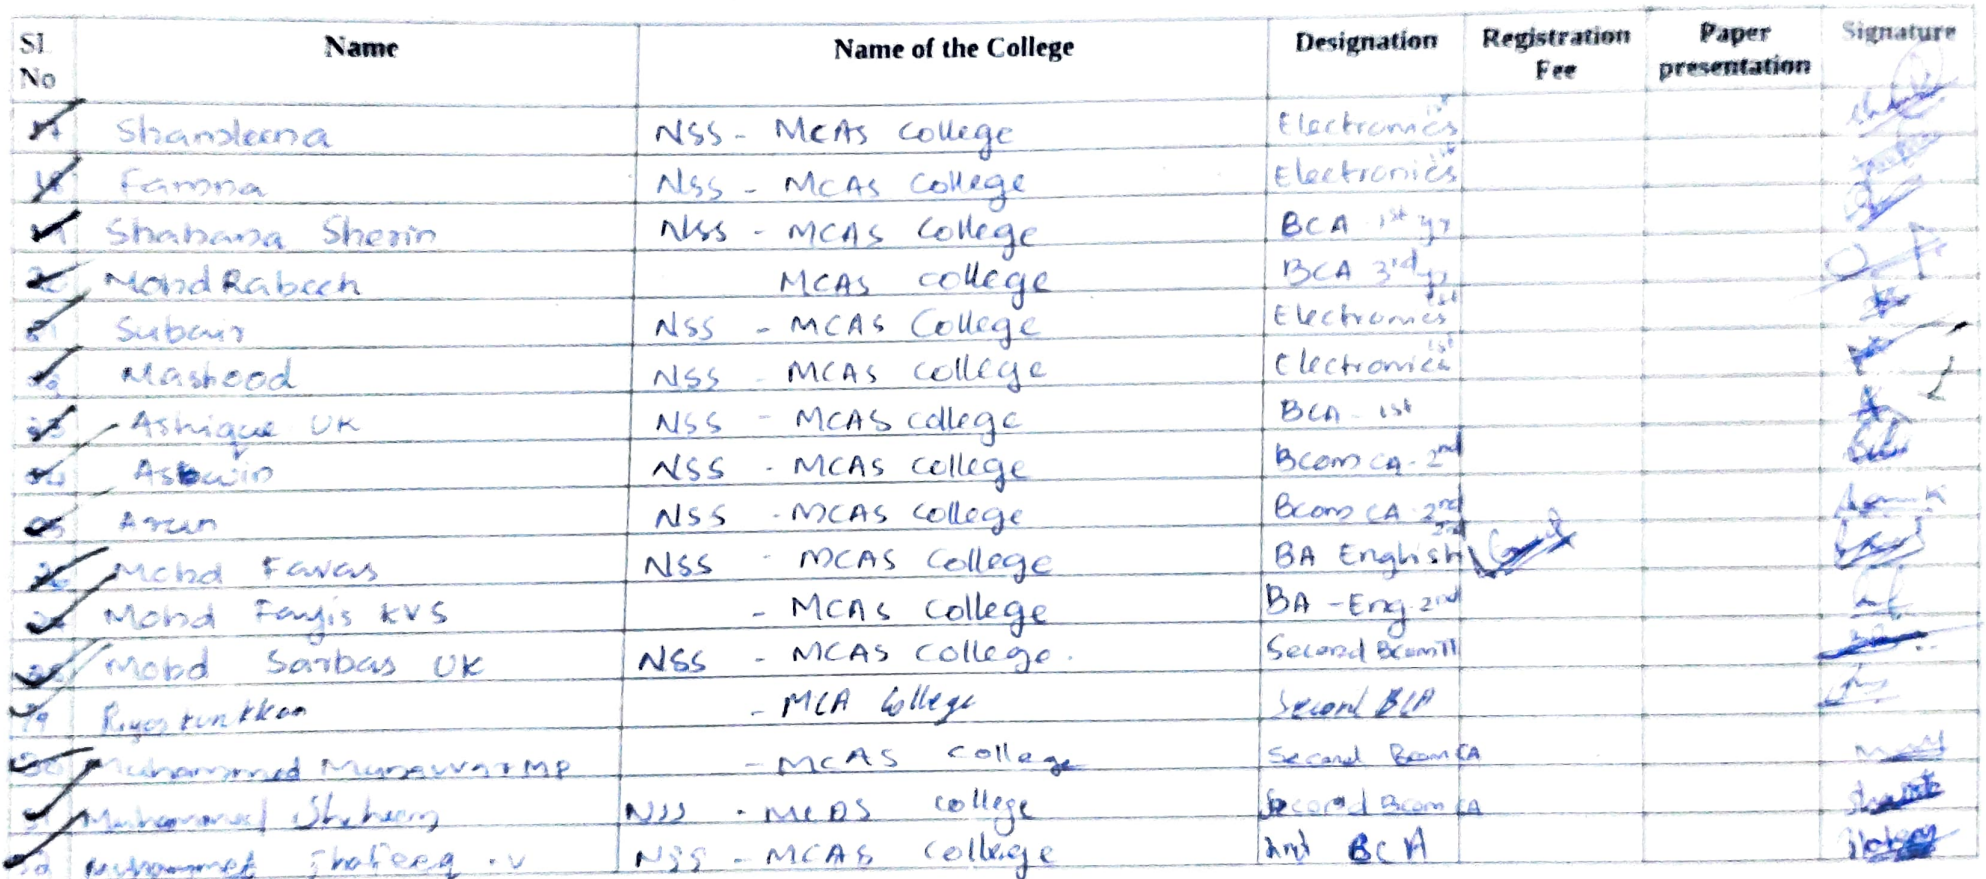 Sl No Name Name of the College Designation Registration Fee Paper presentation Signature
17 Shandeena NSS - MCAS College Electronics 1st
18 Famna NSS - MCAS College Electronics 1st
19 Shabana Sherin NSS - MCAS College BCA 1st yr
Mohd Rabeeh MCAS college BCA 3rd yr
21 Subair NSS - MCAS College Electronics 1st
Mashood NSS - MCAS College Electronics 1st
23 Ashique UK NSS - MCAS college BCA - 1st
24 Aswin NSS - MCAS college Bcom CA - 2nd
25 Arun NSS - MCAS college Bcom CA 2nd
26 Mohd Favas NSS - MCAS College BA English 2nd
Mohd Fayis KVS - MCAS College BA - Eng. 2nd
28 Mohd Sarbas UK NSS - MCAS College. Second Bcom
29 - MCA College Second BCA
30 Muhammed Munavvar MP - MCAS college Second Bcom CA
31 Muhammed NSS - MCAS college Second Bcom CA
32 Muhammed Shafeeq . V NSS - MCAS College 2nd BCA